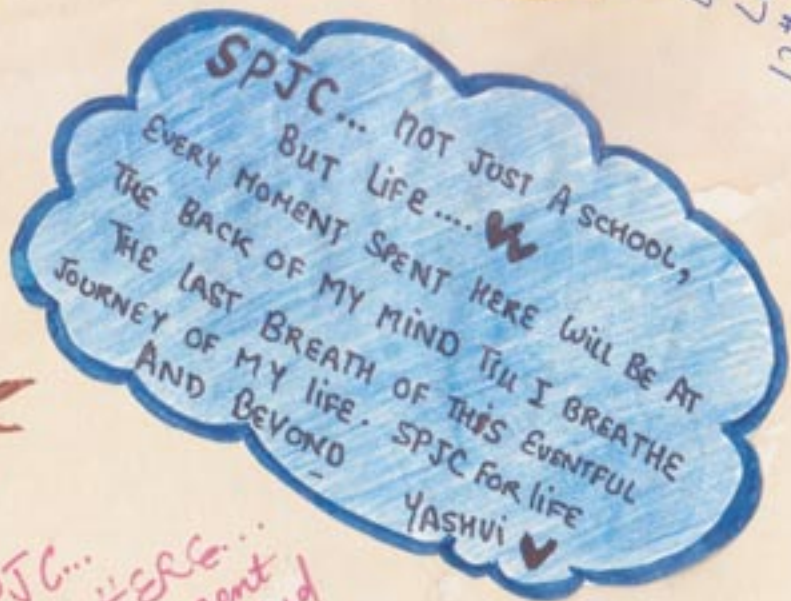 SPJC... NOT JUST A SCHOOL,
BUT LIFE....
EVERY MOMENT SPENT HERE WILL BE AT
THE BACK OF MY MIND TILL I BREATHE
THE LAST BREATH OF THIS EVENTFUL
JOURNEY OF MY LIFE. SPJC FOR LIFE
AND BEYOND
YASHVI